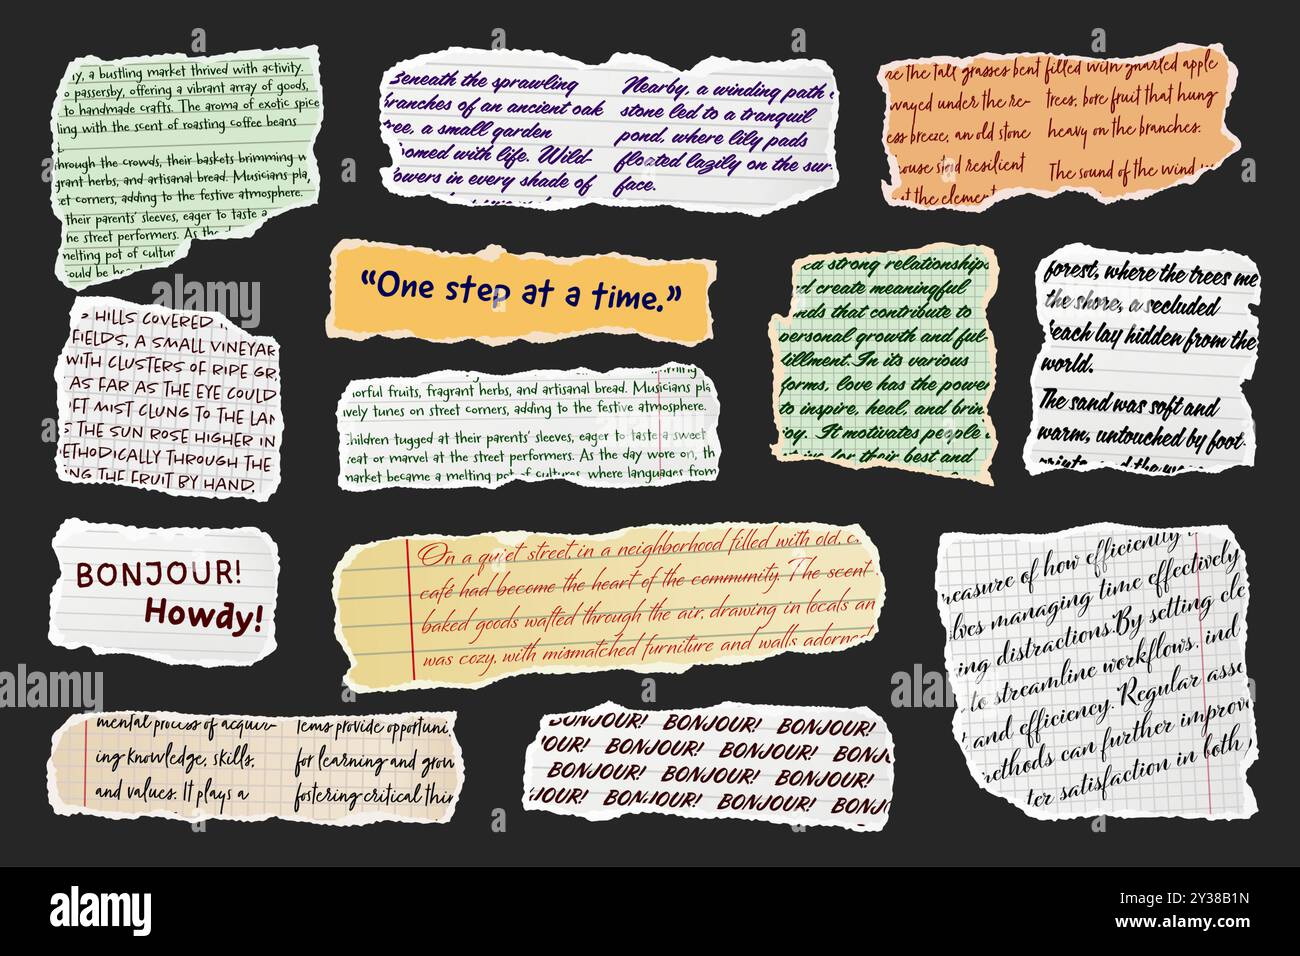 y, a bustling market thrived with activity.
passersby, offering a vibrant array of goods,
to handmade crafts. The aroma of exotic spice
ling with the scent of roasting coffee beans
through the crowds, their baskets brimming w
grant herbs, and artisanal bread. Musicians pla
et corners, adding to the festive atmosphere.
their parents' sleeves, eager to taste a
he street performers. As the d
melting pot of cultur
ould be
Beneath the sprawling
branches of an ancient oak
ree, a small garden
omed with life. Wild-
owers in every shade of
Nearby, a winding path
stone led to a tranquil
pond, where lily pads
floated lazily on the sur-
face.
re the tall grasses bent
wayed under the re-
ess breeze, an old stone
ouse stood resilient
filled with gnarled apple
trees, bore fruit that hung
heavy on the branches.
The sound of the wind
“One step at a time.”
strong relationships
d create meaningful
nds that contribute to
personal growth and ful
fillment. In its various
forms, love has the power
to inspire, heal, and brin
joy. It motivates people
their best and
forest, where the trees me
the shore, a secluded
beach lay hidden from the
world.
The sand was soft and
warm, untouched by foot-
HILLS COVERED
FIELDS, A SMALL VINEYAR
WITH CLUSTERS OF RIPE GR
AS FAR AS THE EYE COULD
FT MIST CLUNG TO THE LAN
S THE SUN ROSE HIGHER IN
ETHODICALLY THROUGH THE
NG THE FRUIT BY HAND.
orful fruits, fragrant herbs, and artisanal bread. Musicians pla
ively tunes on street corners, adding to the festive atmosphere.
Children tugged at their parents' sleeves, eager to taste a sweet
reat or marvel at the street performers. As the day wore on, th
market became a melting pot of cultures, where languages from
BONJOUR!
Howdy!
On a quiet street in a neighborhood filled with old, c
café had become the heart of the community. The scent
baked goods wafted through the air, drawing in locals an
was cozy, with mismatched furniture and walls adorned
easure of how efficiently
lves managing time effectively
ing distractions. By setting cle
to streamline workflows, ind
and efficiency. Regular asse
methods can further improve
ter satisfaction in both
mental process of acquir-
ing knowledge, skills,
and values. It plays a
tems provide opportuni
for learning and grow
fostering critical thin
BONJOUR! BONJOUR! BONJOUR!
OUR! BONJOUR! BONJOUR! BONJ
BONJOUR! BONJOUR! BONJOUR!
JOUR! BONJOUR! BONJOUR! BONJ
alamy
Image ID: 2Y38B1N
www.alamy.com